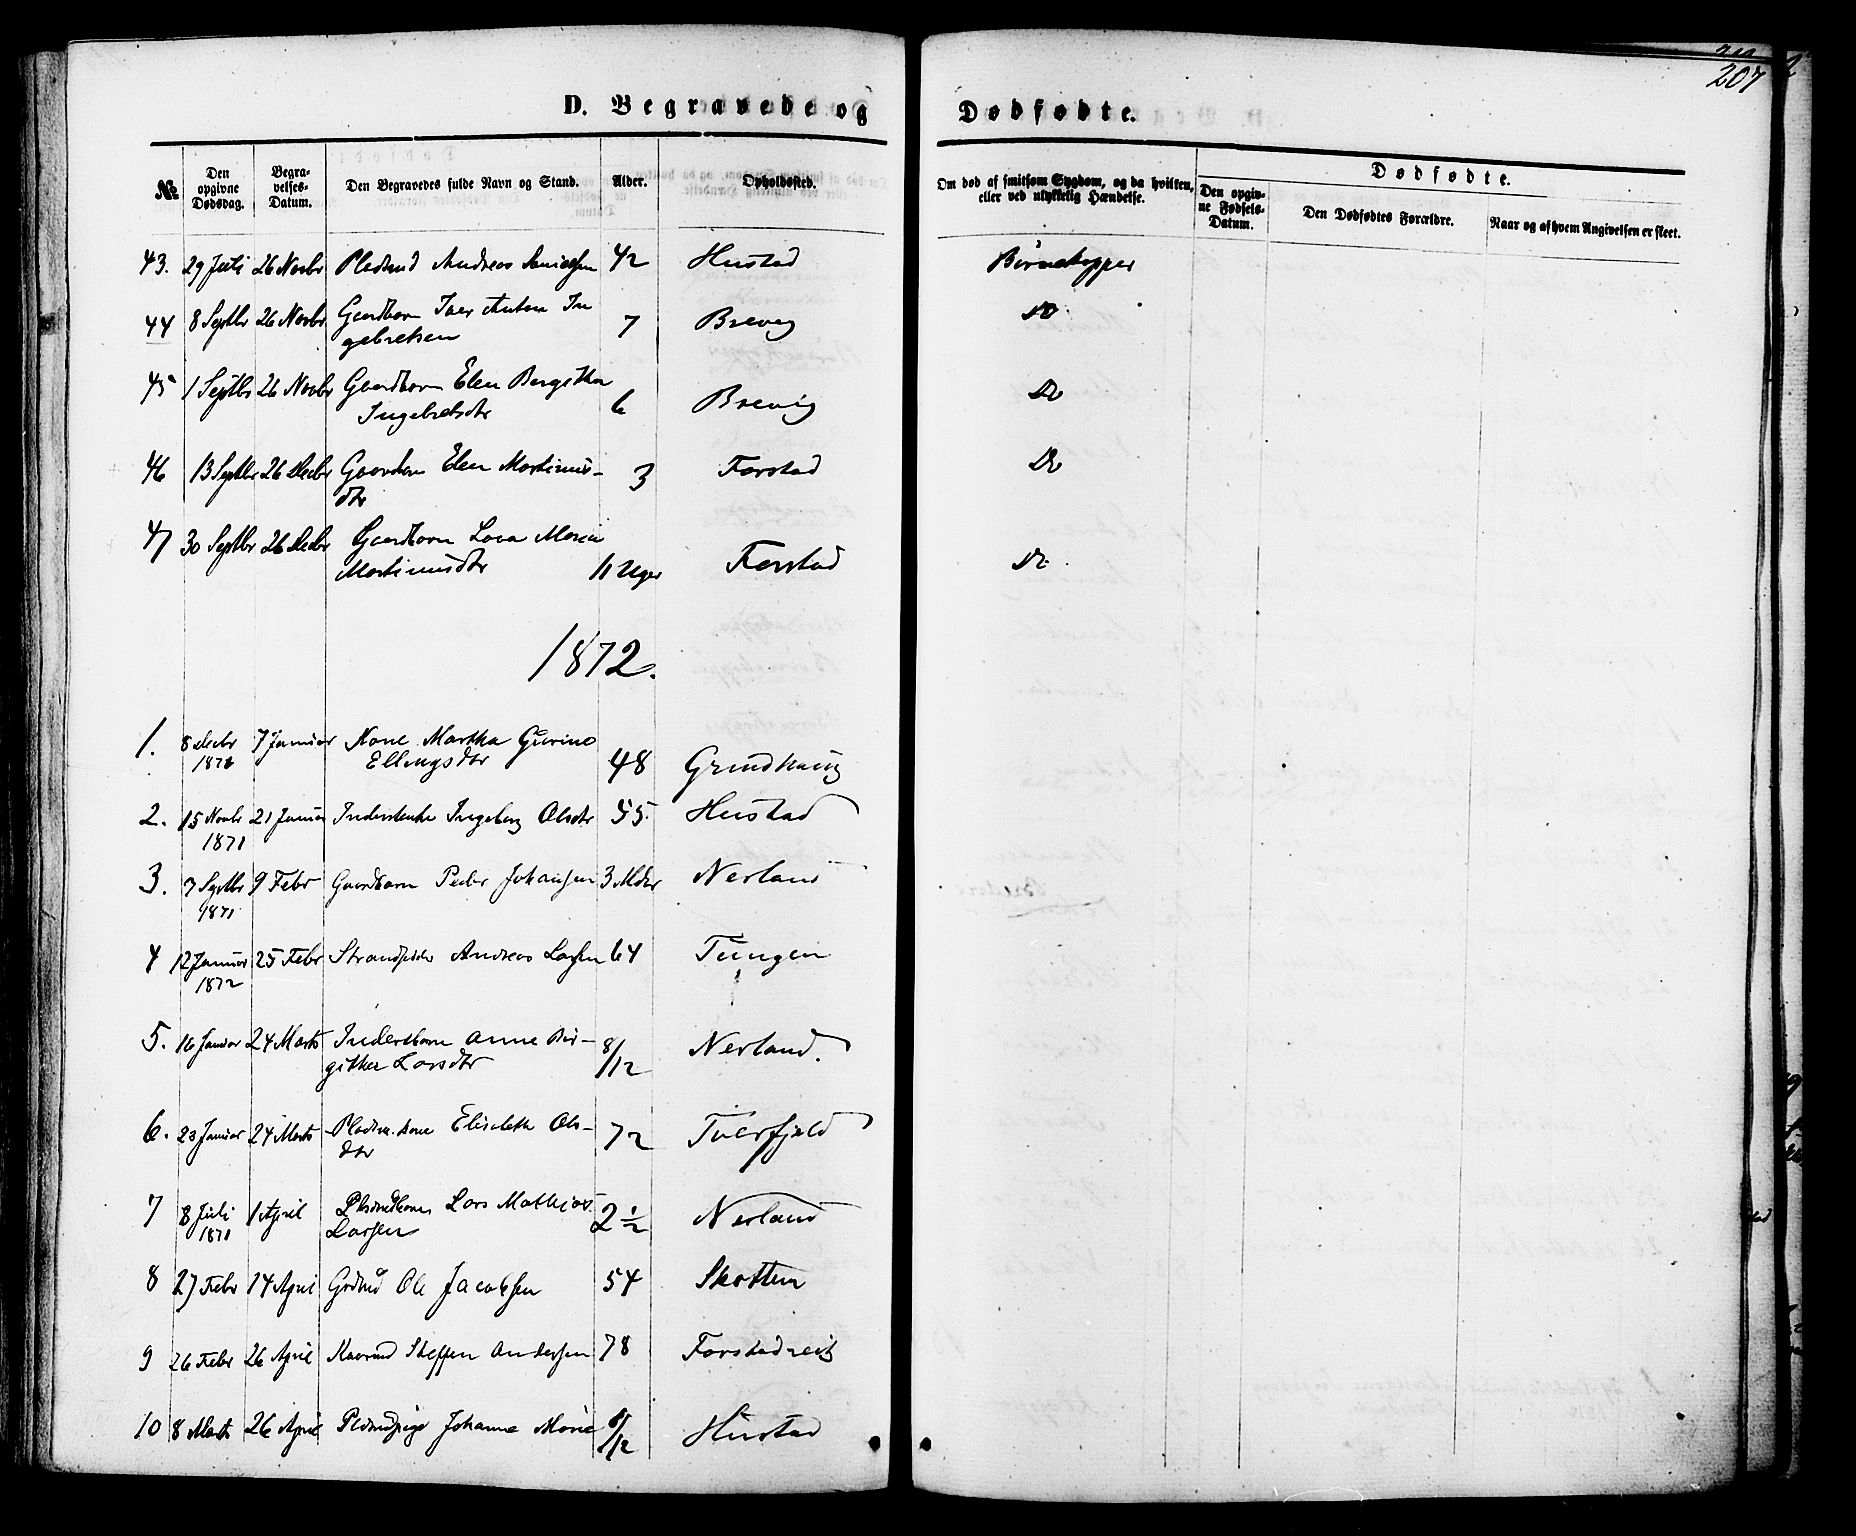 207
D. Begravede og Dødfødte.
№
Den opgivne Dødsdag.
Begravelses-Datum.
Den Begravedes fulde Navn og Stand.
Alder.
Opholdssted.
Om død af smitsom Sygdom, og da hvilken, eller ved ulykkelig Hændelse.
Dødfødte.
Den opgivne Fødsels-Datum.
Den Dødfødtes Forældre.
Naar og af hvem Angivelsen er skeet.
43. 29 Juli 26 Novbr Andreas 42 Hustad Børnekopper
44 8 Septbr 26 Novbr Gaardbarn Iver Anton In 7 Brevig Do
gebretsen
45 1 Septbr 26 Novbr Gaardbarn Elen Bergitha 6 Brevig Do
Ingebretsdtr
46 13 Septbr 26 Decbr Gaardbarn Elen Martinus- 3 Farstad Do
dtr
47 30 Septbr 26 Decbr Gaardbarn Maria
Martinusdtr 11 Uger Farstad Do.
1872.
1. 8 Decbr 7 Januar Kone Martha Gurine
1871 Ellingsdtr 48 Grindhaug
2. 15 Novbr 21 Januar Ingeborg Olsdtr 55. Hustad
1871
3. 7 Septbr 9 Febr Gaardbarn Peder Johansen 3 Mdr Nerland
1871
4 12 Januar 25 Febr Strandsidder Andreas Larsen 64 Tungen
1872
5. 16 Januar 24 Marts Inderstbarn Anne Bir- 8/12 Nerland.
githa Larsdtr
6. 23 Januar 24 Marts Kone Elisabeth Ols- 72 Tverfjeld
dtr
7 8 Juli 1 April Lars Mathias 2 1/2 Nerland
1871 Larsen
8 27 Febr 14 April Ole Jacobsen 54 Skotten
9 26 Febr 26 April Kaarmd Steffen Andersen 78 Farstad
10 8 Marts 26 April Johanna Marie 8/12 Hustad